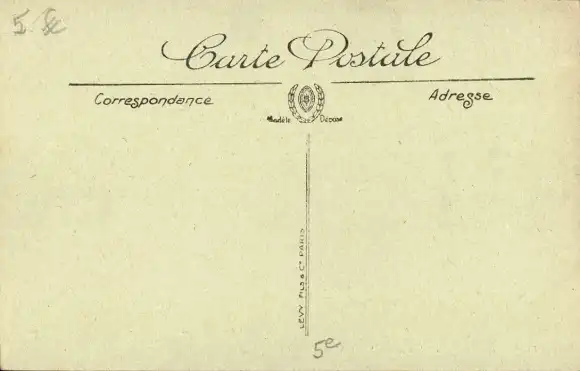 5
Carte Postale
Correspondance
Adresse
Modèle Déposé
LÉVY FILS & Cie PARIS
5e